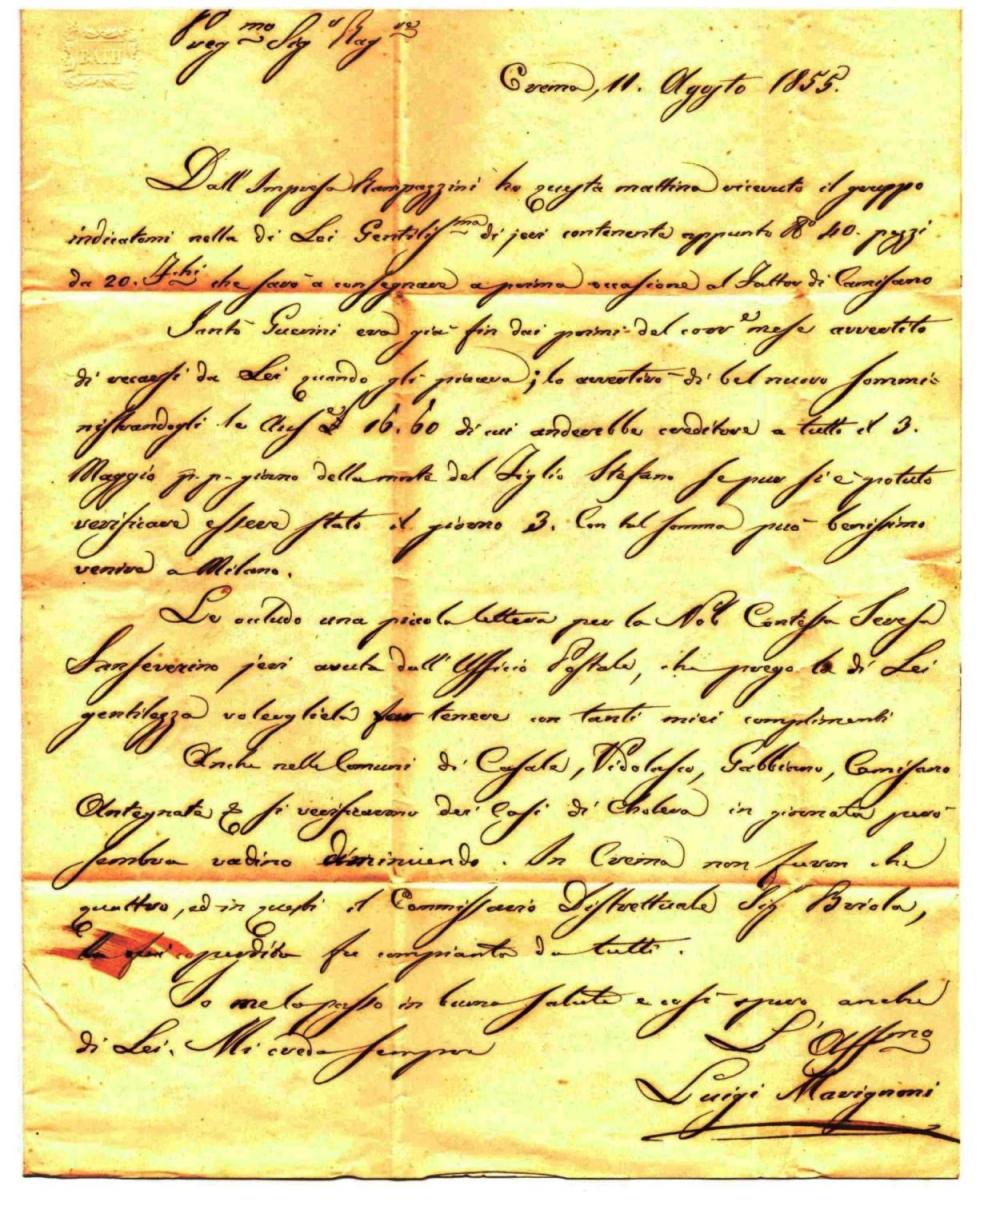 BATH
Preg.mo Sig.r Rag.re
Crema, 11. Agosto 1855.
Dall'Impresa Rampazzini ho questa mattina ricevuto il gruppo
indicatomi nella di Lei Gentiliss.ma di jeri contenente appunto N.o 40. pezzi
da 20. F.chi che sarò a consegnare a prima occasione al Fattor di Camisano
Santo Guerini era già fin dai primi del corr.e mese avvertito
di recarsi da Lei quando gli piaceva; lo avvertirò di bel nuovo sommi=
nistrandogli le Aus £ 16.60 di cui anderebbe creditore a tutto il 3.
Maggio p. p. giorno della morte del Figlio Stefano se pur si è potuto
verificare essere stato il giorno 3. Con tal somma può benissimo
venire a Milano.
Le accludo una picola lettera per la Nob Contessa Teresa
Sanseverino jeri avuta dall'Ufficio Postale, che prego la di Lei
gentilezza volergliela far tenere con tanti miei complimenti
Anche nelle Comuni di Casale, Vidolasco, Gabbiano, Camisano
Antegnate & si verificarono dei Casi di Cholera in giornata però
sembra vadino diminuendo. In Crema non furon che
quattro, ed in questi il Commissario Distrettuale Sig Briola,
la cui perdita fu compianta da tutti.
Io me la passo in buona salute e così spero anche
di Lei. Mi creda sempre
L'Aff.mo
Luigi Marignoni